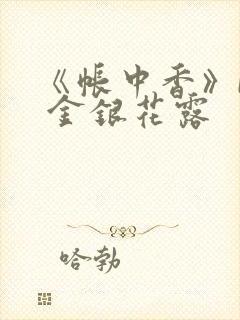 《帐中香》
金银花露
哈勃